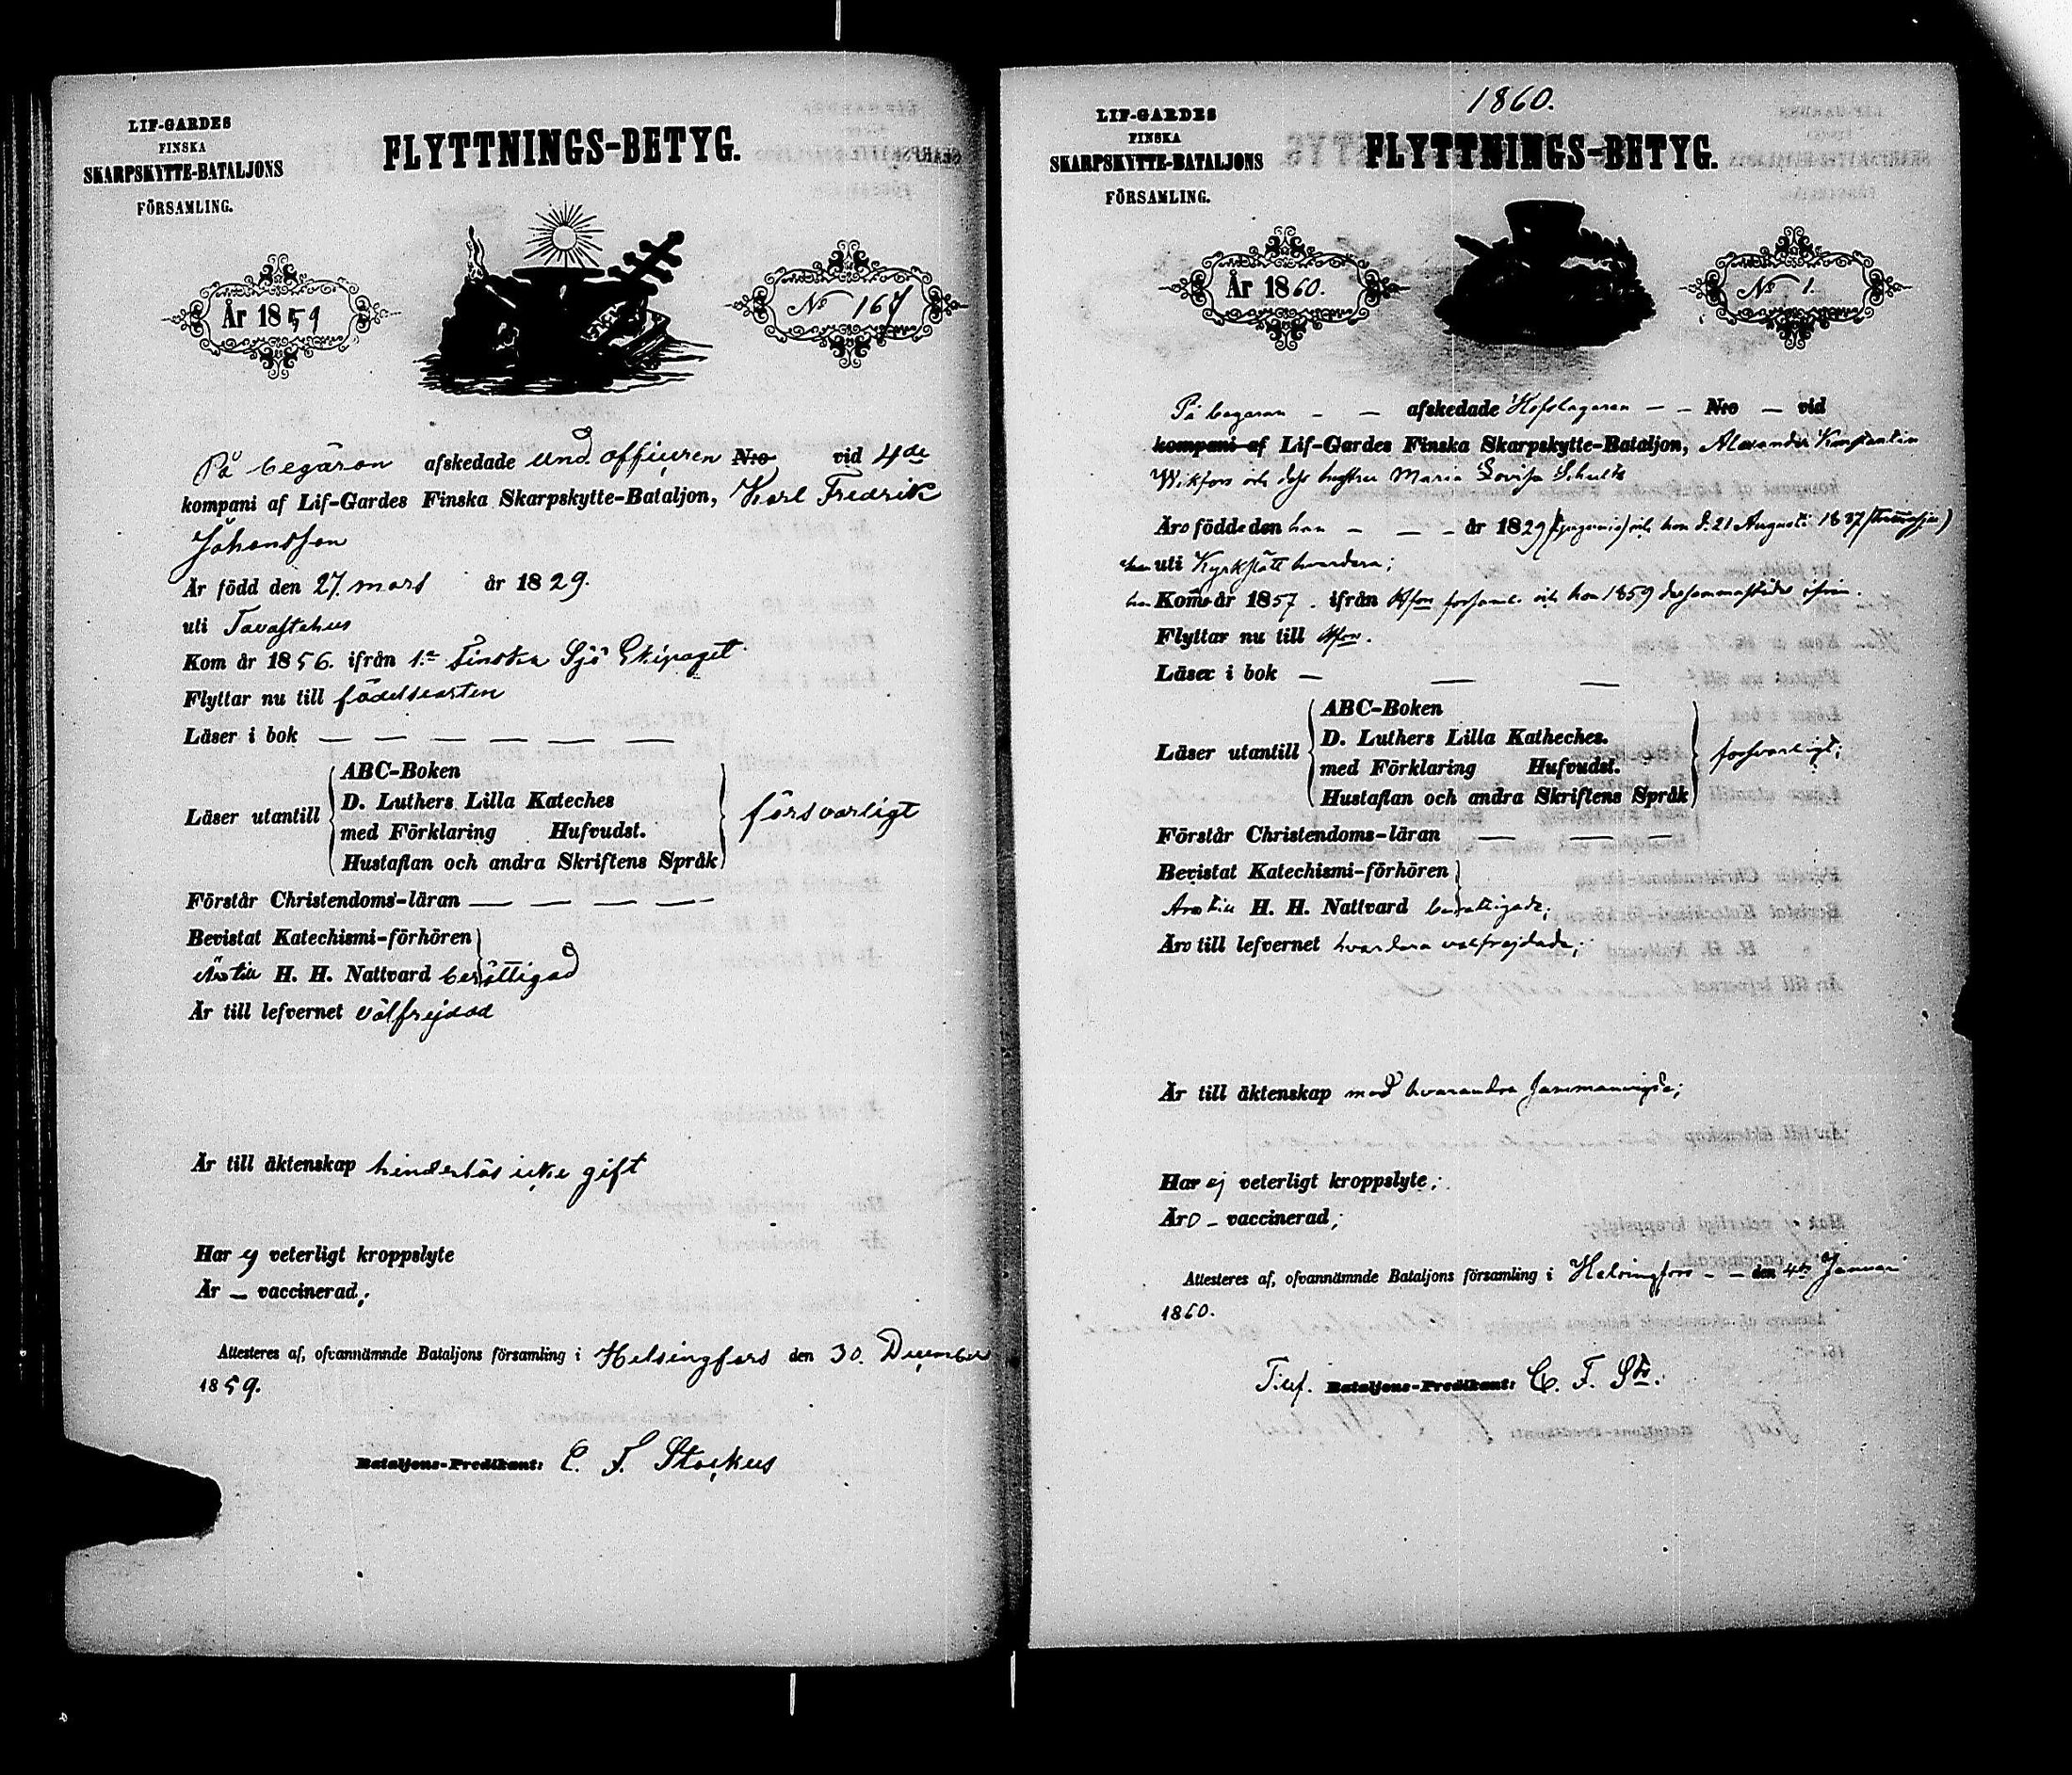 LIF-GARDES
FINSKA
SKARPSKYTTE-BATALJONS
FÖRSAMLING.
FLYTTNINGS-BETYG.
År 1859
No 167
På begäran afskedade und. officeren N:o vid 4de
kompani af Lif-Gardes Finska Skarpskytte-Bataljon, Karl Fredrik
Johansson
Är född den 27. mars år 1829.
uti Tavastehus
Kom år 1856. ifrån 1.a Finska Sjö Ekipaget.
Flyttar nu till födelseorten
Läser i bok — — — — — —
Läser utantill
ABC-Boken
D. Luthers Lilla Kateches
med Förklaring Hufvudst.
Hustaflan och andra Skriftens Språk
försvarligt
Förstår Christendoms-läran — — — —
Bevistat Katechismi-förhören
Är till H. H. Nattvard berättigad
Är till lefvernet välfrejdad
Är till äktenskap hinderlös icke gift
Har ej veterligt kroppslyte
Är — vaccinerad;
Attesteras af, ofvannämnde Bataljons församling i Helsingfors den 30. December
1859.
Bataljons-Predikant: C. F. Stockus
1860.
LIF-GARDES
FINSKA
SKARPSKYTTE-BATALJONS
FÖRSAMLING.
FLYTTNINGS-BETYG.
År 1860.
No 1.
På begäran — — afskedade Hofslagaren — — N:o — vid
kompani af Lif-Gardes Finska Skarpskytte-Bataljon, Alexander Konstantin
Wikfors och dess hustru Maria Lovisa Schultz
Äro födde den han — — — år 1829 och hon d. 21 Augusti 1837
uti Kyrkslätt hvardera;
han Kom år 1857. ifrån Hfors forsaml. och hon 1859 dersammastädes ifrån.
Flyttar nu till Hfors.
Läser i bok — — —
Läser utantill
ABC-Boken
D. Luthers Lilla Katheches.
med Förklaring Hufvudst.
Hustaflan och andra Skriftens Språk
forsvarligt;
Förstår Christendoms-läran — — —
Bevistat Katechismi-förhören
Äro till H. H. Nattvard berättigade;
Äro till lefvernet hvardera välfrejdade;
Är till äktenskap med hvarandra sammanvigde;
Har ej veterligt kroppslyte;
Äro — vaccinerad;
Attesteres af, ofvannämnde Bataljons församling i Helsingfors — — den 4de Januari
1860.
T.uf. Bataljons-Predikant: C. F. Sts.